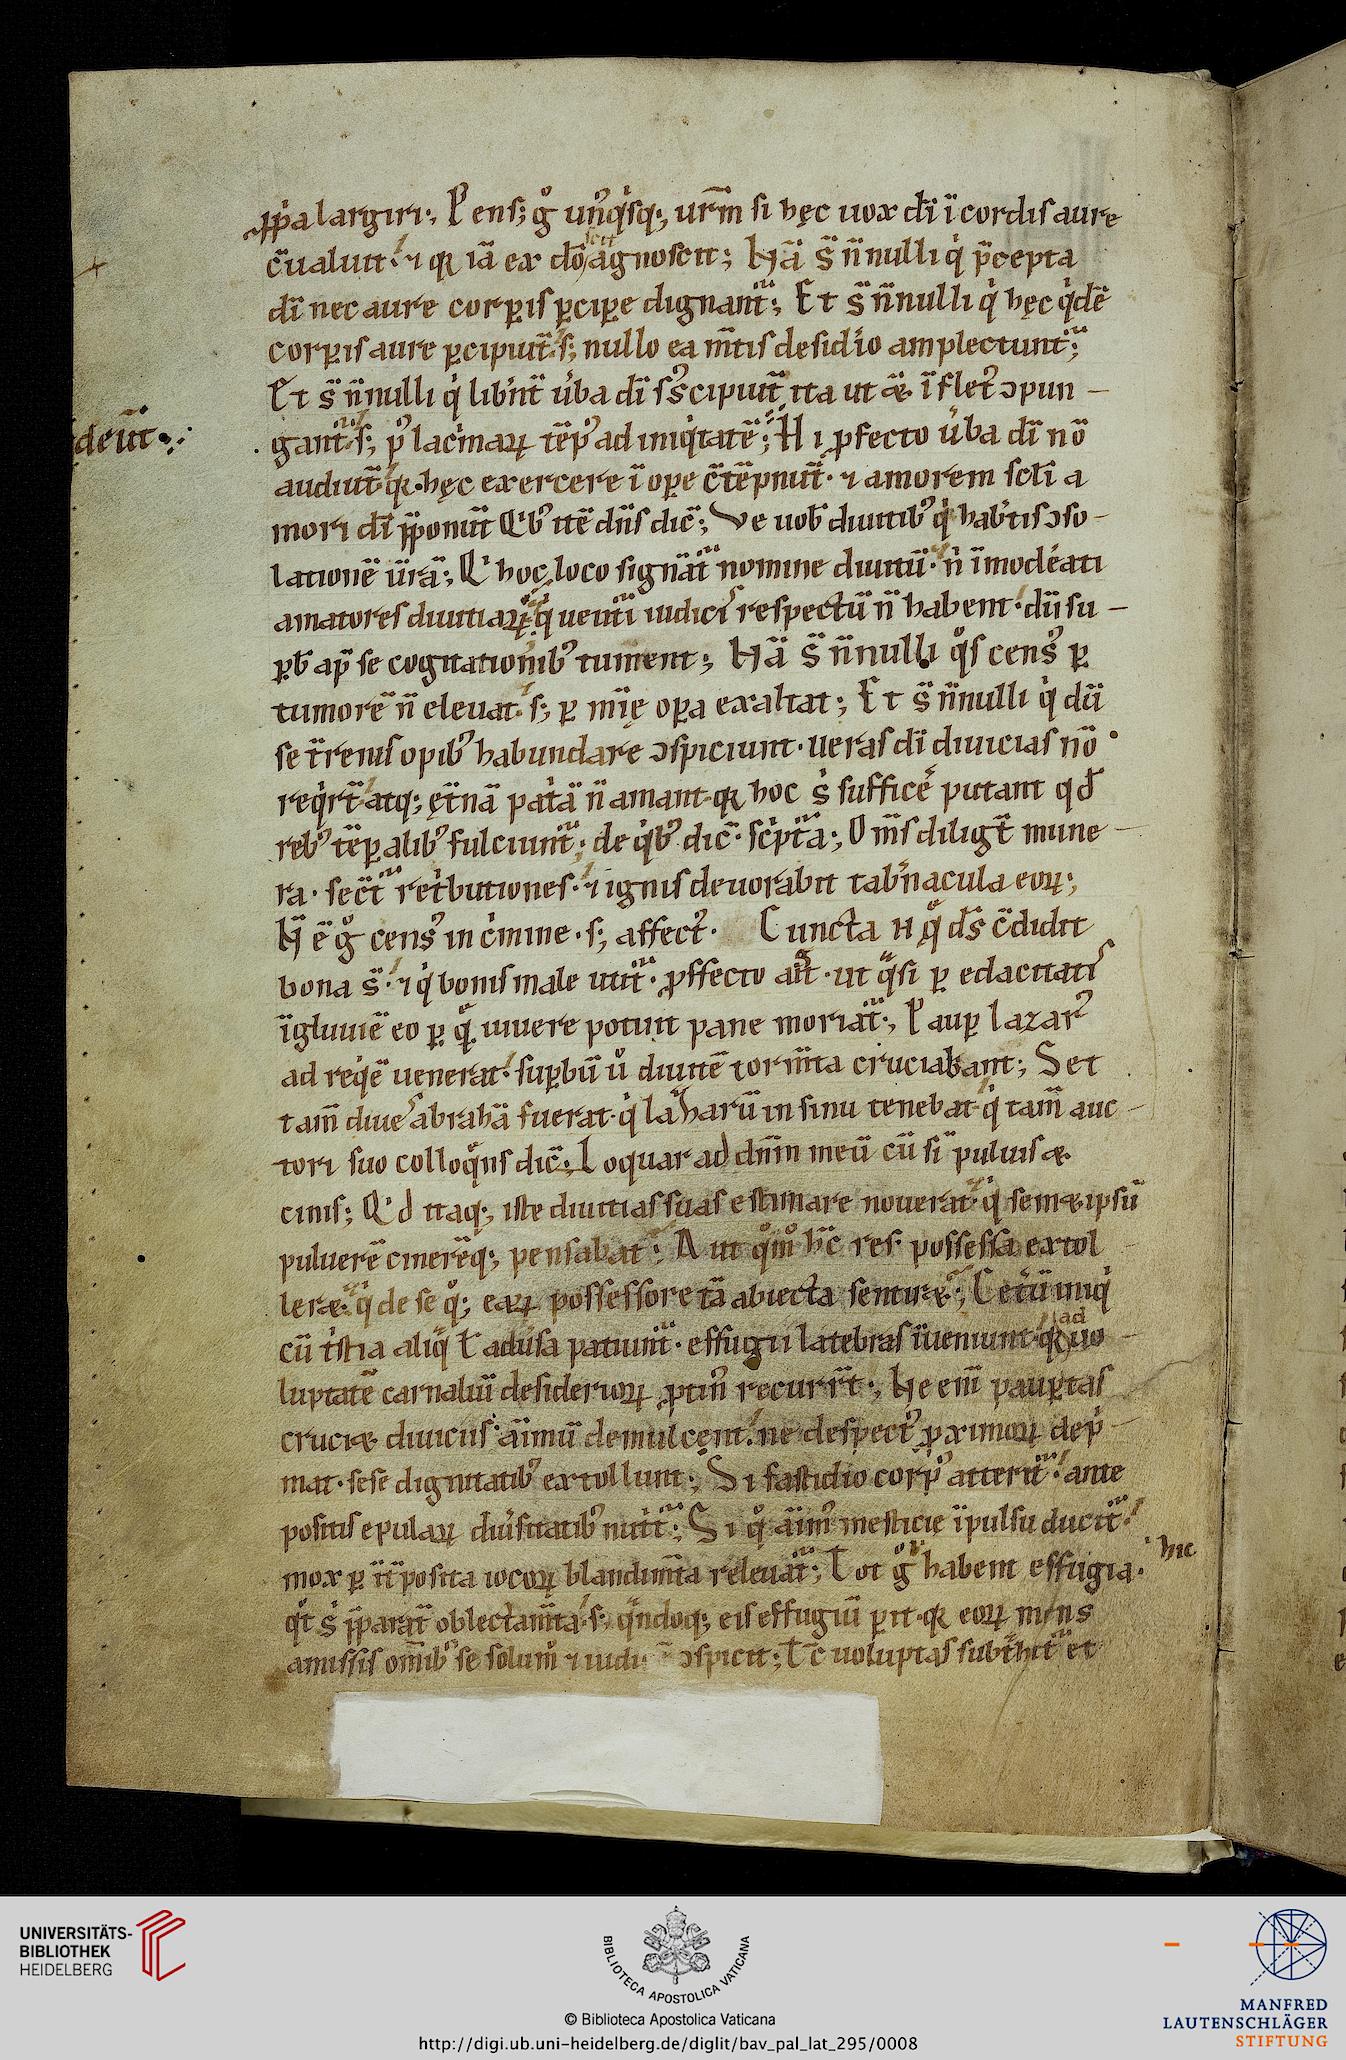 ꝓp̃a largiri:, Pens; gͦ un9qͥsq;, urm̃ si hęc uox dĩ ĩ cordis aure
c̃ualuit · ⁊ qꝛ iã ex dõ agnoscit; Nã s̃ ñnulli qͥ p̃cepta
dĩ nec aure corꝑis ꝑciꝑe dignant̃; Et s̃ ñnulli qͥ hęc qͥdẽ
corꝑis aure ꝑcipiut̃ · s; nullo ea m̃tis desidio amplectunt̃;
Et s̃ ñnulli qͥ libñt u̓ba dĩ s9cipiut̃ ita ut & ĩ flet9 ɔpun
gant̃ · s; p9 lacͥmaꝝ tẽp9 ad iniqͥtatẽ; Hi ꝓfecto u̓ba dĩ nõ
deut̃
audiut̃ qꝛ hęc exercere ĩ oꝑe c̃tẽpnut̃ · ⁊ amorem sctĩ a
mori dĩ p̃ponut̃ Qͥb9 itẽ dñs dic̃; Ve uob̃ diuitib9 qͥ hab̓tis ɔso
lationẽ ur̃ã; Qͥ hoc loco signat̃ nomine diuitũ · ñ ĩmod̓ati
amatores diuitiaꝝ · qͥ uent̓i iudicĩ respectũ ñ habent · dũ su
ꝑb̃ ap̃ se cogitationib9 tument; Nã s̃ ñnulli qͦs cens9 ꝑ
tumorẽ ñ eleuat · s; ꝑ mĩę oꝑa exaltat; Et s̃ ñnulli qͥ dũ
se t̃renis opib9 habundare ɔspiciunt · ueras dĩ diuicias nõ
reqͥrt̃ atq; ęt̃nã patͥã ñ amant · qꝛ hoc sͥ suffic̓e putant qd̃
reb9 tẽꝑalib9 fulciunt̃; de qͥb9 dic̃ · scͥptͣa; Om̃s diligt̃ mune
ra · sect̃ retͥbutiones · ⁊ ignis deuorabit tab̓nacula eoꝝ;
Ñ ẽ gͦ cens9 in cͥmine · s; affect9 · Cuncta n̓ qͦ ds̃ c̃didit
bona s̃ · ⁊ qͥ bonis male utit̃ · ꝓffecto aĩt · ut qͣsi ꝑ edacitatĩ
ĩgluuiẽ eo ꝑ qͦ · uiuere potuit pane moriat̃;, Pauꝑ lazar9
ad reqͥẽ uenerat · suꝑbũ uͦ diuitẽ torm̃ta cruciabant; Set
tam̃ diues abrahã fuerat · qͥ lazarũ in sinu tenebat · qͥ tam̃ auc
tori suo colloqͦns dic̃; Loquar ad dñm meũ cũ si puluis &
cinis; Qͥd itaq;, iste diuitias suas estimare nouerat · qͥ sem&ipsũ
puluerẽ cinerẽq; pensabat; Aut qͦm̊ hc̃ res possessa extol
ler& · qͥ de se qͦ; eaꝝ possessore tã abiecta sentir&; Cet̓ũ iniqͥ
cũ tͥstia aliqͣ t̃ adu̓sa patiunt̃ · effugii latebras ĩueniunt · qꝛ ad uo
luptatẽ carnaliũ desiderioꝝ ꝓtin9 recurrt̃; Ne em̃ pauꝑtas
cruci& diuiciis aĩmũ demulcent · ne despect9 ꝓximoꝝ depͥ
mat · sese dignitatib9 extollunt; Si fastidio corp9 atterit̃ · ante
positis epulaꝝ diu̓sitatib9 nutit̃; Si qͦ aĩm9 mesticię ĩpulsu ducit̃ ·
mox ꝑ ĩt̃posita iocoꝝ blandim̃ta releuat̃; Tot gͦ habent effugia · hic
qͦt sͥ p̃parat̃ oblectam̃ta · s; qͣndoq; eis effugiũ ꝑit · qꝛ eoꝝ mens
amissis om̃ib9 se solum̊ ⁊ iudi ɔspicit; T̃c uoluptas subtͣhit̃ et
UNIVERSITÄTS-
BIBLIOTHEK
HEIDELBERG
BIBLIOTECA APOSTOLICA VATICANA
© Biblioteca Apostolica Vaticana
http://digi.ub.uni-heidelberg.de/diglit/bav_pal_lat_295/0008
MANFRED
LAUTENSCHLÄGER
STIFTUNG